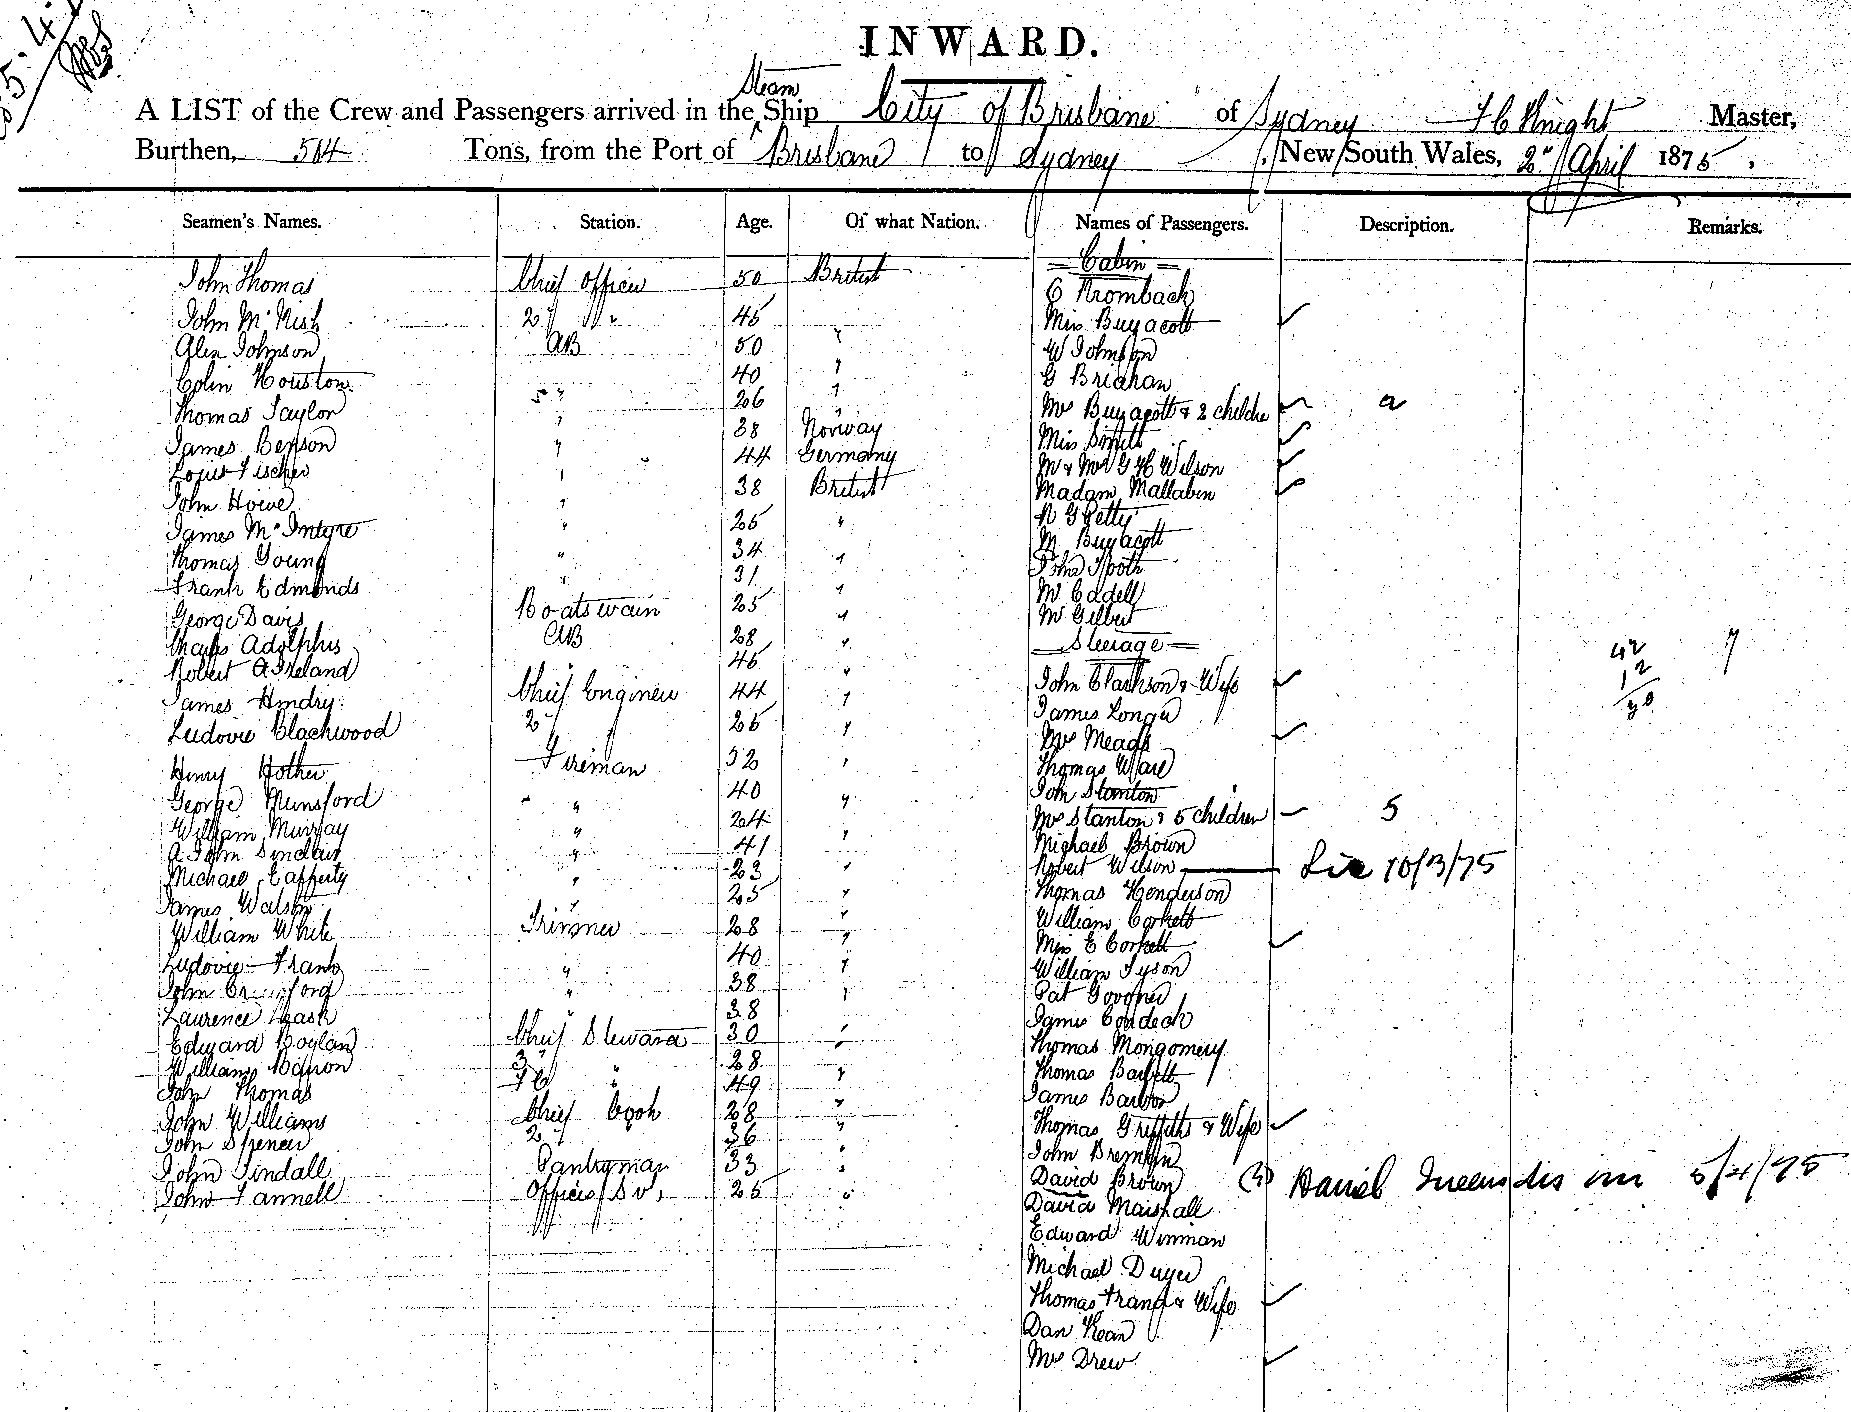 INWARD.
Steam
A LIST of the Crew and Passengers arrived in the Ship City of Brisbane of Sydney Master,
Burthen, 504 Tons, from the Port of Brisbane to Sydney New South Wales, 2" April 1875.
Seamen's Names. Station. Age. Of what Nation. Names of Passengers. Description. Remarks.
Cabin
John Thomas Chief Officer 50 British C Krombach
John McNish 2" " 45 Miss Buyacott
Alex Johnson AB 50 " W Johnson
Colin Houston " 40 " G
Thomas Taylor " 26 " Mrs Buyacott & 2 childn a
James Benson " 38 Norway Miss Smith
Louis Fischer " 44 Germany Mr & Mrs G H Wilson
John Howe " 38 British Madam Mallabin
James McIntyre " 25 " Petty
Thomas Young " 34 " M Buyacott
Frank Edmonds " 31 " John
George Davis Boatswain 25 " Mr Eddell
Charles Adolphus AB 28 " Mr Gilbert
Steerage
Robert A Ireland 45 " John Clarkson & Wife
James Hendry Chief Engineer 44 " James Longe
Ludovic Blackwood 2" 26 " Mrs Meads
Henry Hother Fireman 32 " Thomas Ware
George Munsford " 40 " John Stanton
William Murray " 24 " Mrs Stanton & 5 children 5
A John Sinclair " 41 " Michael Brown
Michael Cafferty " 23 " Robert Wilson 10/3/75
James Watson " 25 " Thomas Henderson
William White Trimmer 28 " William Corkett
Ludovic Frank " 40 " Miss E Corkett
John " 38 " William Tyson
Laurence " 38 Pat
Edward Boylan Chief Steward 30 " James
William 2" " 28 " Thomas Montgomery
John Thomas " 49 " Thomas Barfett
John Williams Chief Cook 28 " James Barlow
John Spencer 2" 36 " Thomas Griffiths & Wife
John Tindall Pantryman 33 " John
John Fannell Officers Sv. 25 " David Brown 5/4/75
David Marshall
Edward Winman
Michael Dwyer
Thomas Frang & Wife
Dan Kean
Mrs Drew
42
12
7